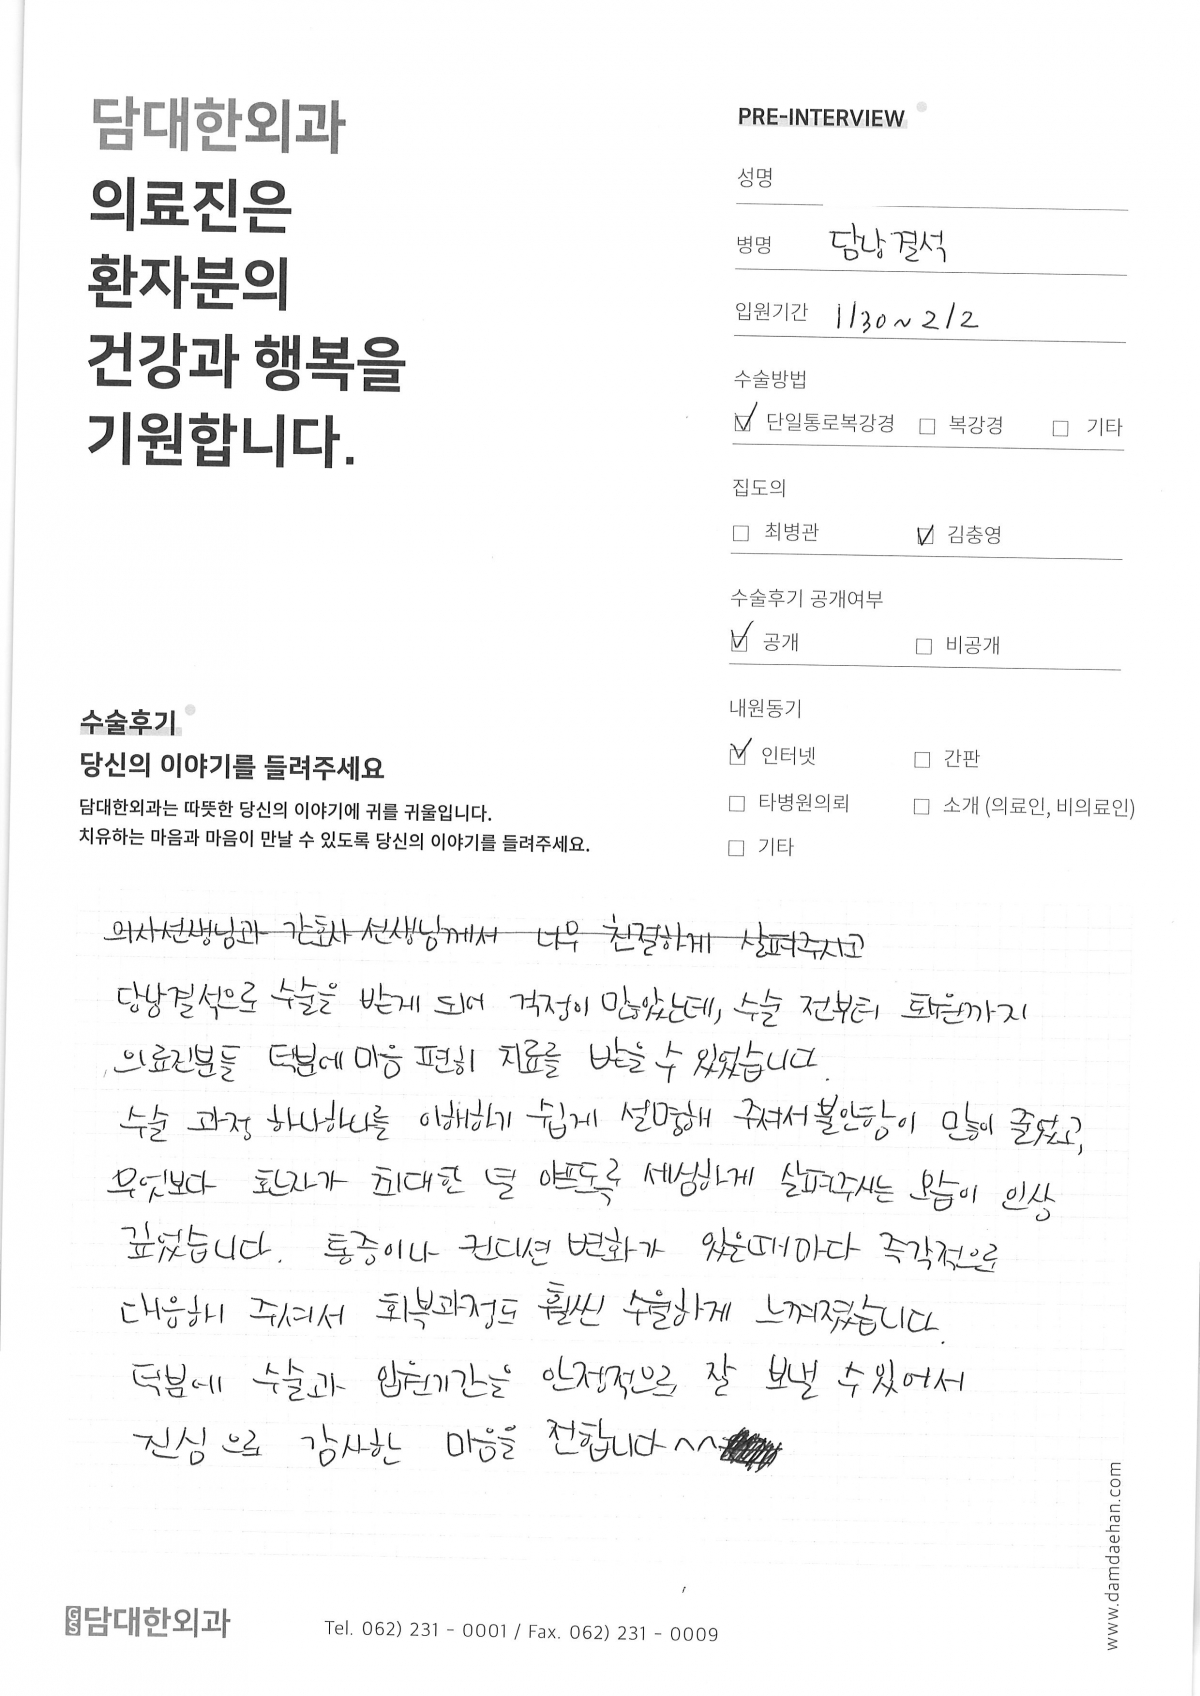 담대한외과
의료진은
환자분의
건강과 행복을
기원합니다.
PRE-INTERVIEW
성명
병명 담낭결석
입원기간 1/30 ~ 2/2
수술방법
☑ 단일통로복강경 □ 복강경 □ 기타
집도의
□ 최병관 ☑ 김충영
수술후기 공개여부
☑ 공개 □ 비공개
내원동기
☑ 인터넷 □ 간판
□ 타병원의뢰 □ 소개 (의료인, 비의료인)
□ 기타
수술후기
당신의 이야기를 들려주세요
담대한외과는 따뜻한 당신의 이야기에 귀를 귀울입니다.
치유하는 마음과 마음이 만날 수 있도록 당신의 이야기를 들려주세요.
의사선생님과 간호사 선생님께서 너무 친절하게 살펴주시고
담낭결석으로 수술을 받게 되어 걱정이 많았는데, 수술 전부터 퇴원까지
의료진분들 덕분에 마음 편히 치료를 받을 수 있었습니다.
수술 과정 하나하나를 이해하기 쉽게 설명해 주셔서 불안함이 많이 줄었고,
무엇보다 환자가 최대한 덜 아프도록 세심하게 살펴주시는 모습이 인상
깊었습니다. 통증이나 컨디션 변화가 있을때마다 즉각적으로
대응해 주셔서 회복과정도 훨씬 수월하게 느껴졌습니다.
덕분에 수술과 입원기간을 안정적으로 잘 보낼 수 있어서
진심으로 감사한 마음을 전합니다 ^^
GS 담대한외과
Tel. 062) 231 - 0001 / Fax. 062) 231 - 0009
www.damdaehan.com